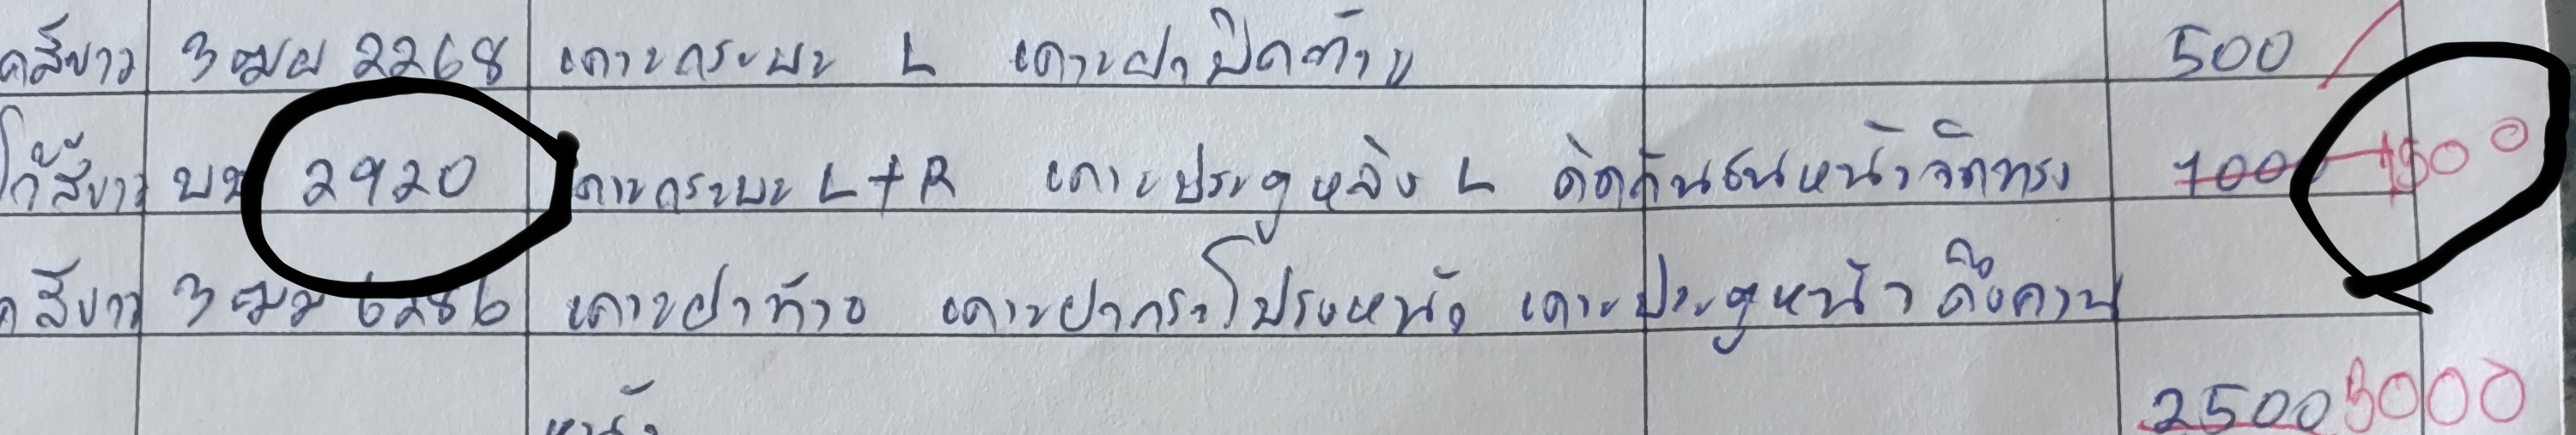 คสีขาว 3ฒผ 2268 เคาะกระบะ L เคาะฝาปิดท้าย 500
โก้สีขาว บบ 2920 เคาะกระบะ L+R เคาะประตูหลัง L ดัดกันชนหน้าจัดทรง 1000 1500
คสีขาว 3ฒม 6286 เคาะฝาท้าย เคาะฝากระโปรงหน้า เคาะประตูหน้า ดึงคาน
หน้า 2500 3000